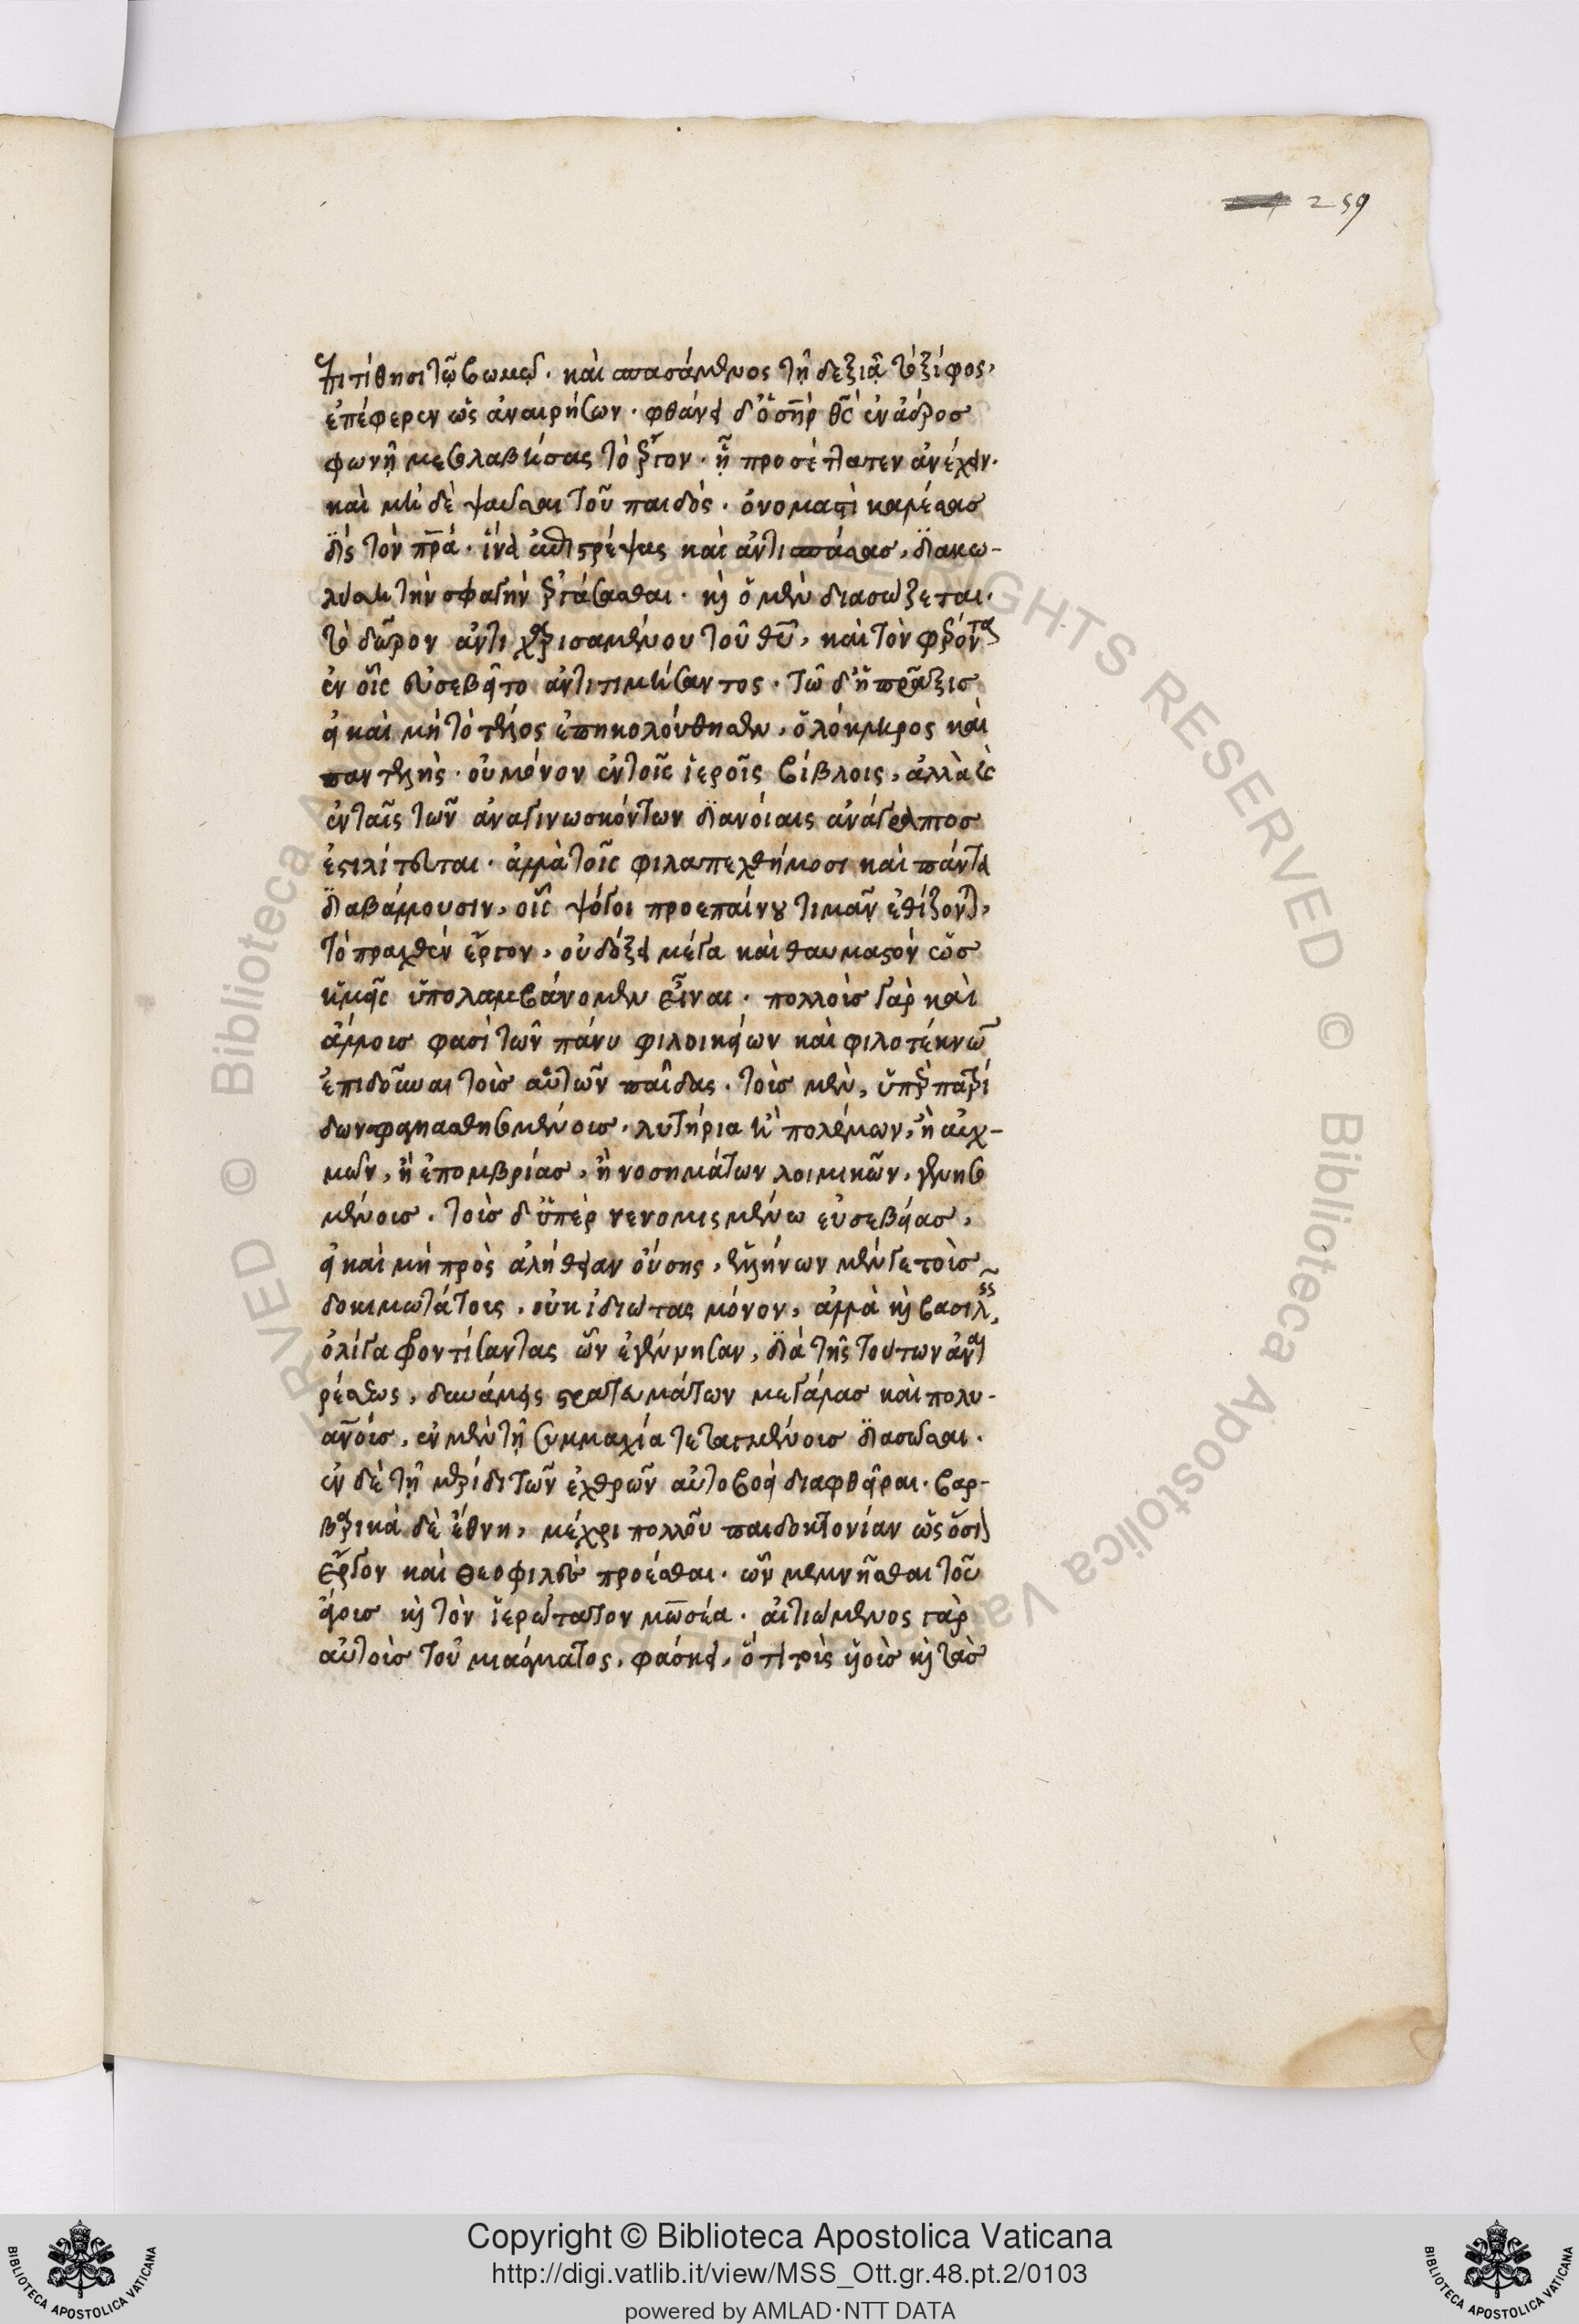 259
ἐπιτίθησι τῷ βωμῷ· καὶ σπασάμενος τῇ δεξιᾷ τὸ ξίφος,
ἐπέφερεν ὡς ἀναιρήσων· φθάνει δ' ὁ σὴρ θς ἐν ἀέρος
φωνῇ μεσολαβήσας τὸ ἔργον· ᾗ προσέταττεν ἀνέχειν·
καὶ μὴ δὲ ψαῦσαι τοῦ παιδός· ὀνομαστὶ καλέσας
δὶς τὸν πρα· ἵνα ἐπιστρέψας καὶ ἀντισπάσας, διακω-
λύσῃ τὴν σφαγὴν ἐργάσασθαι· καὶ ὁ μὲν διασώζεται·
τὸ δῶρον ἀντιχαρισαμένου τοῦ θυ, καὶ τὸν φέροντα
ἐν οἷς εὐσεβεῖτο ἀντιτιμήσαντος· τῶ δ' ἡ πρᾶξις
εἰ καὶ μὴ τὸ τέλος ἐπηκολούθησεν, ὁλόκληρος καὶ
παντελὴς· οὐ μόνον ἐν τοῖς ἱεροῖς βίβλοις, ἀλλὰ καὶ
ἐν ταῖς τῶν ἀναγινωσκόντων διανοίαις ἀνάγραπτος
ἐστιλίτευται· ἀλλὰ τοῖς φιλαπεχθήμοσι καὶ πάντα
διαβάλλουσιν, οἷς ψόγοι προεπαίνου τιμᾶν ἐθίζονται,
τὸ πραχθὲν ἔργον, οὐ δόξει μέγα καὶ θαυμαστὸν ὡς
ἡμεῖς ὑπολαμβάνομεν εἶναι· πολλοὺς γὰρ καὶ
ἄλλους φασὶ τῶν πάνυ φιλοικείων καὶ φιλοτέκνων
ἐπιδοῦναι τοὺς αὐτῶν παῖδας· τοὺς μὲν, ὑπὲρ πατρί
δων σφαγιασθησομένους, λυτήρια ἢ πολέμων, ἢ αὐχ-
μῶν, ἢ ἐπομβρίας, ἢ νοσημάτων λοιμικῶν, γενησο
μένους· τοὺς δ' ὑπὲρ νενομισμένω εὐσεβείας,
εἰ καὶ μὴ πρὸς ἀλήθειαν οὔσης, ἑλλήνων μέν γε τοὺς
δοκιμωτάτους, οὐκ ἰδιώτας μόνον, ἀλλὰ καὶ βασιλεῖς,
ὀλίγα φροντίσαντας ὧν ἐγέννησαν, διὰ τῆς τούτων ἀναι
ρέσεως, δυνάμεις στρατευμάτων μεγάλας καὶ πολυ-
ανους, ἐν μὲν τῇ συμμαχία τεταγμένους διασῶσαι·
ἐν δὲ τῇ μερίδι τῶν ἐχθρῶν αὐτοβοεὶ διαφθεῖραι· βαρ-
βαρικὰ δὲ ἔθνη, μέχρι πολλοῦ παιδοκτονίαν ὡς ὅσιον
ἔργον καὶ θεοφιλὲς προέσθαι· ὧν μεμνῆσθαι τοῦ
ἄγους καὶ τὸν ἱερώτατον μωσέα· αἰτιώμενος γὰρ
αὐτοὺς τοῦ μιάσματος, φάσκει, ὅτι τοὺς υἱοὺς καὶ τὰς
Copyright © Biblioteca Apostolica Vaticana
http://digi.vatlib.it/view/MSS_Ott.gr.48.pt.2/0103
powered by AMLAD·NTT DATA